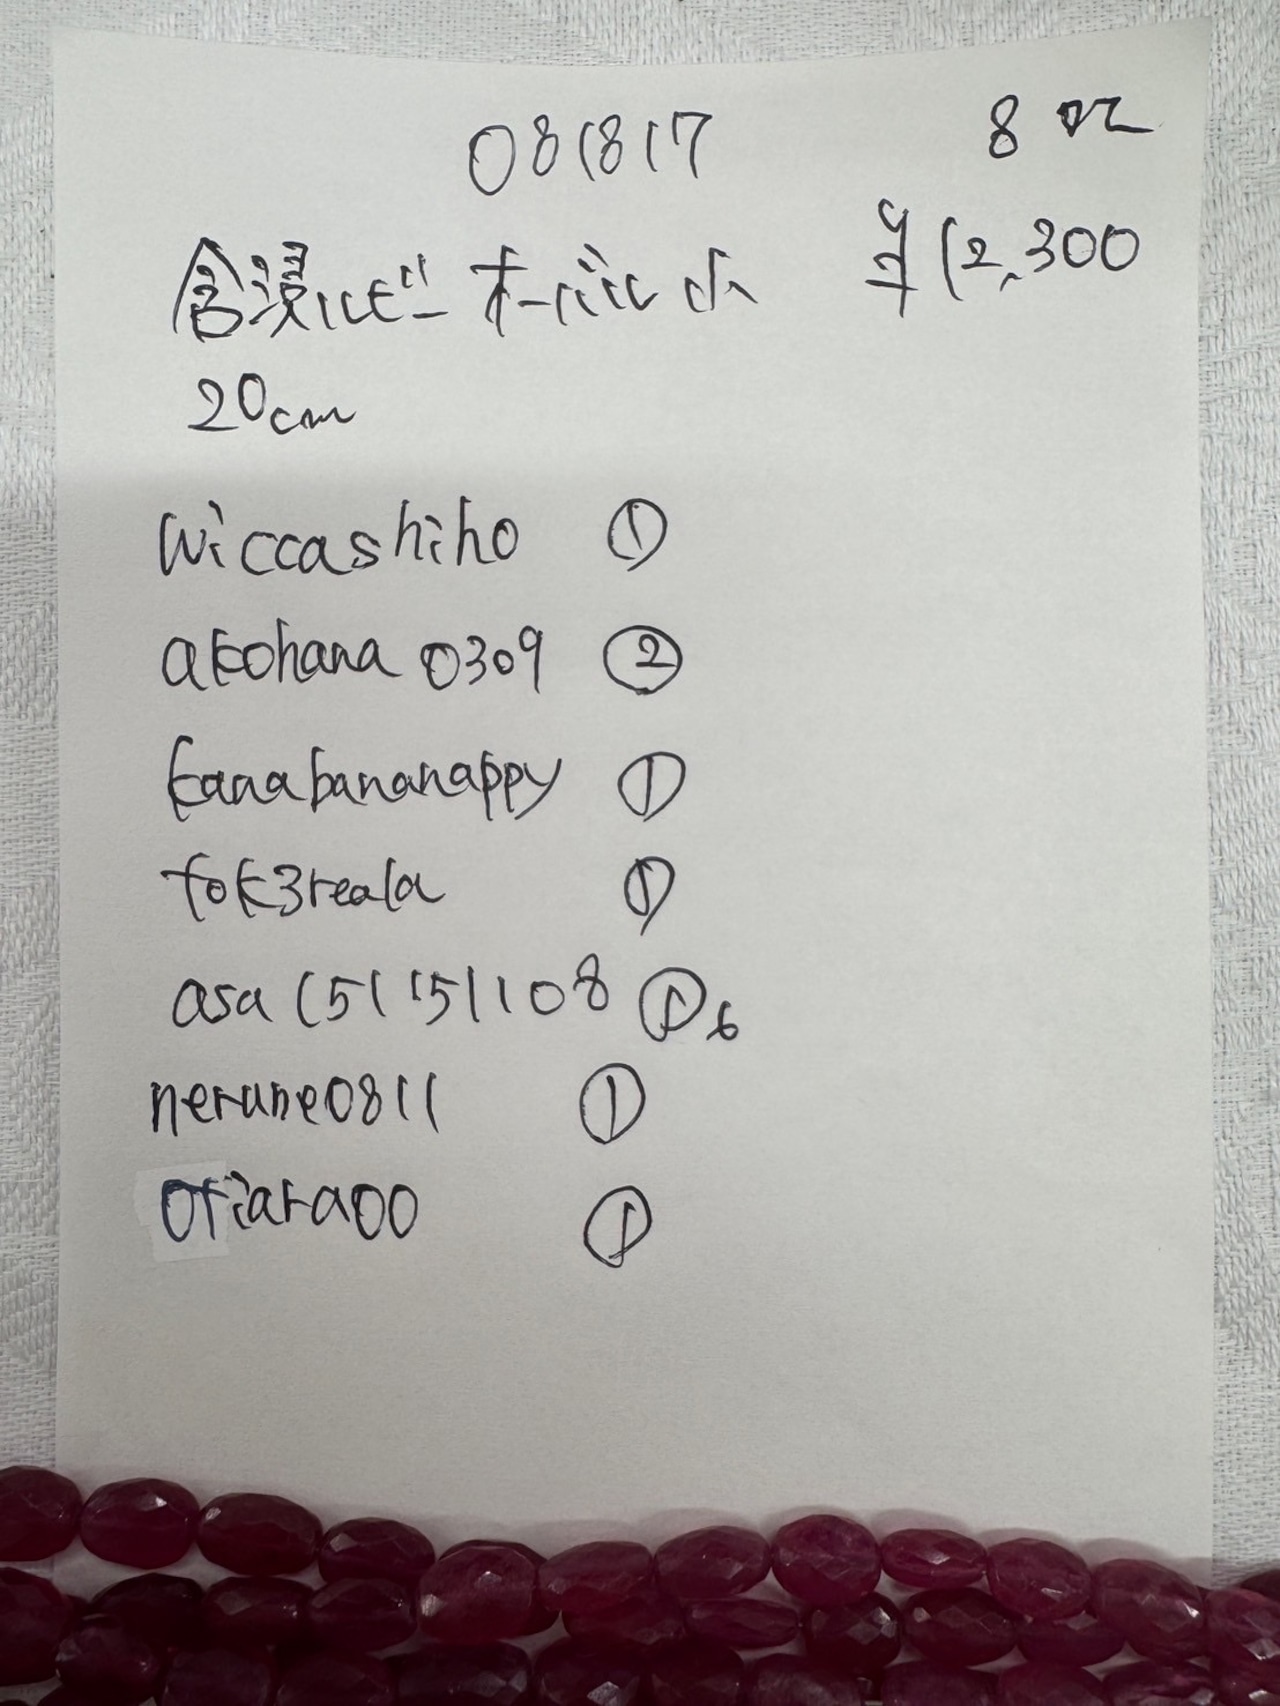 081817 8本
含浸ルビーオーバル小 ¥12,300
20cm
wiccashiho ①
akohana0309 ②
kanabananappy ①
tok3reala ①
asa151151108 ① 6
nerune0811 ①
otiara00 ①